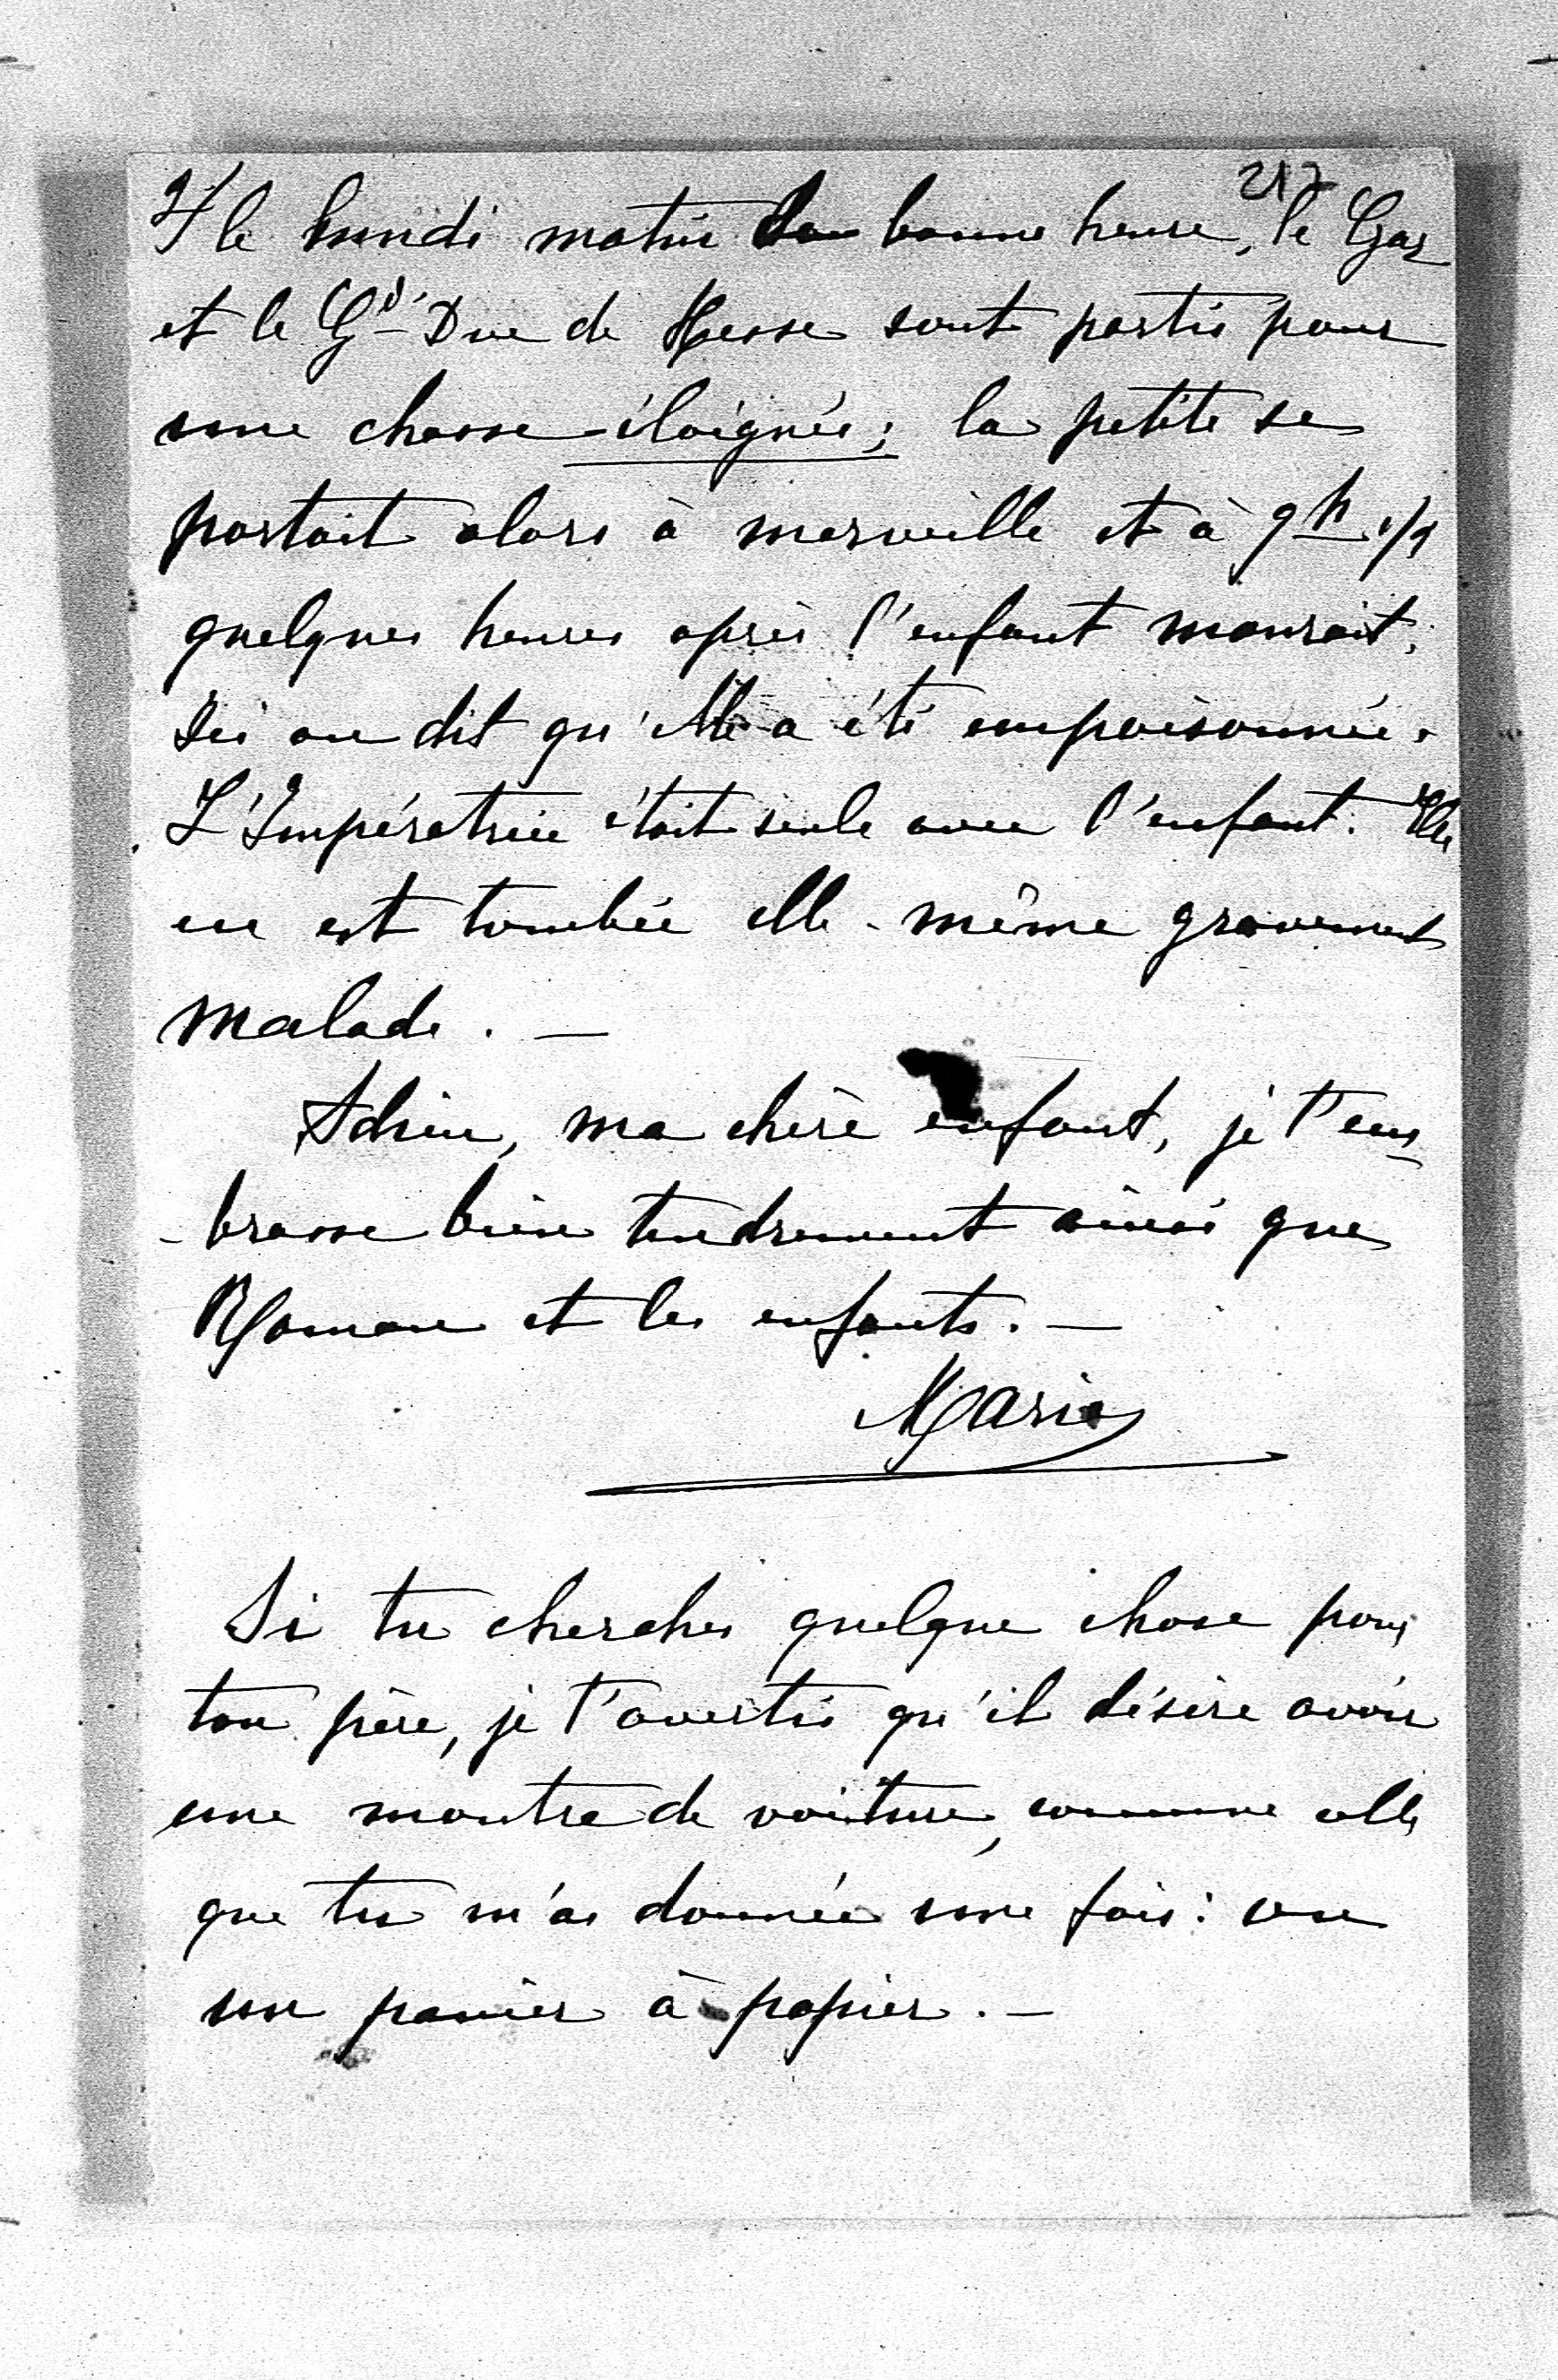 217
4/ le lundi matin de bonne heure, le Czar
et le Gd Duc de Hesse sont partis pour
une chasse éloignée; la petite se
portait alors à merveille et à 9h 1/2
quelques heures après l'enfant mourait;
Ici on dit qu'elle a été empoisonnée.
L'Impératrice était seule avec l'enfant. Elle
en est tombée elle-même gravement
malade. —
Adieu, ma chère enfant, je t'em-
-brasse bien tendrement ainsi que
Romane et les enfants. —
Marie
Si tu cherches quelque chose pour
ton père, je t'avertis qu'il désire avoir
une montre de voiture, comme celle
que tu m'as donnée une fois: ou
un panier à papier. —